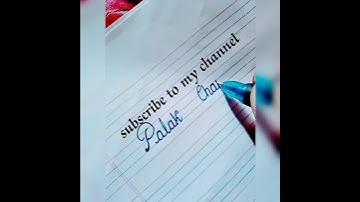 subscribe to my channel
Palak